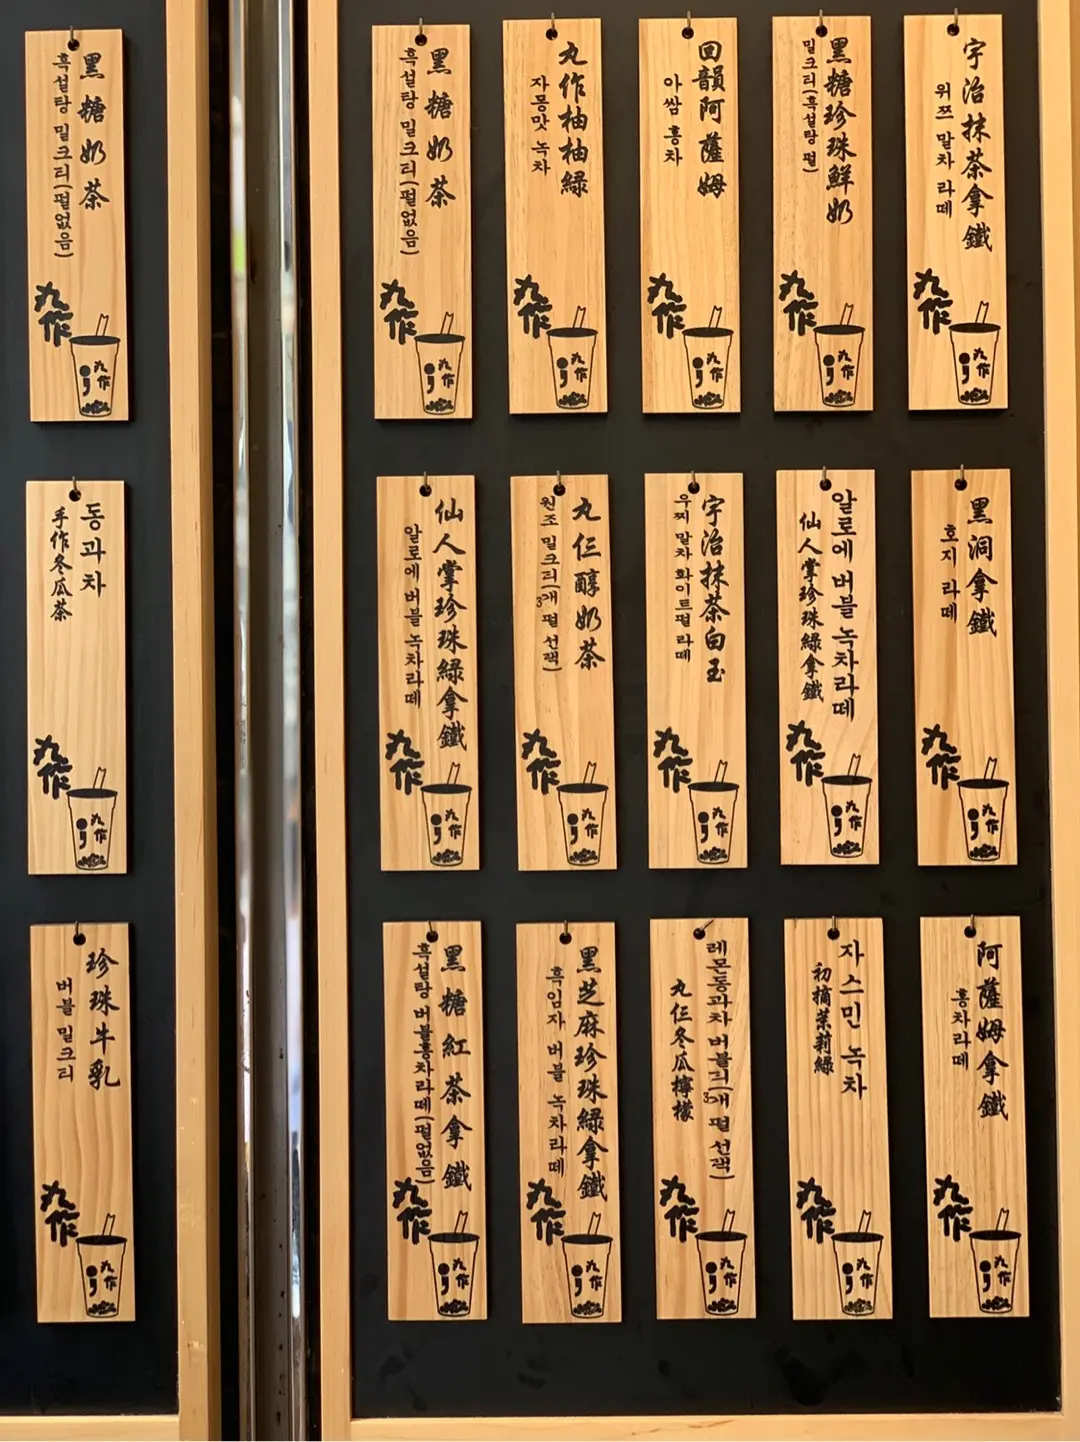 黑糖奶茶
흑설탕 밀크티(펄없음)
九作
九作
黑糖奶茶
흑설탕 밀크티(펄없음)
九作
九作
丸作柚柚綠
자몽맛 녹차
九作
九作
回韻阿薩姆
아쌈 홍차
九作
九作
黑糖珍珠鮮奶
밀크티(흑설탕 펄)
九作
九作
宇治抹茶拿鐵
위쯔 말차 라떼
九作
九作
동과차
手作冬瓜茶
九作
九作
仙人掌珍珠綠拿鐵
알로에 버블 녹차라떼
九作
九作
丸仨醇奶茶
원조 밀크티(3개 펄 선택)
九作
九作
宇治抹茶白玉
우찌 말차 화이트펄 라떼
九作
九作
알로에 버블 녹차라떼
仙人掌珍珠綠拿鐵
九作
九作
黑洞拿鐵
호지 라떼
九作
九作
珍珠牛乳
버블 밀크티
九作
九作
黑糖紅茶拿鐵
흑설탕 버블홍차라떼(펄없음)
九作
九作
黑芝麻珍珠綠拿鐵
흑임자 버블 녹차라떼
九作
九作
레몬동과차 버블티(3개 펄 선택)
丸仨冬瓜檸檬
九作
九作
자스민 녹차
初摘茉莉綠
九作
九作
阿薩姆拿鐵
홍차라떼
九作
九作